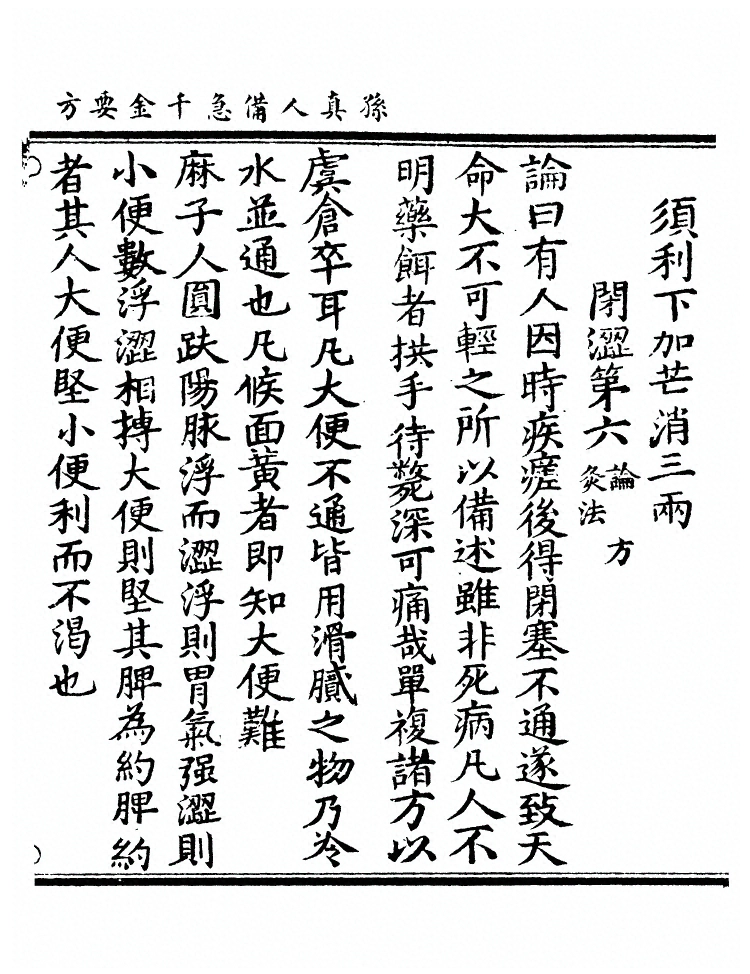 孫真人備急千金要方
須利下加芒消三兩
閉澀第六 論 方 灸法
論曰有人因時疾瘥後得閉塞不通遂致夭
命大不可輕之所以備述雖非死病凡人不
明藥餌者拱手待斃深可痛哉單複諸方以
虞倉卒耳凡大便不通皆用滑膩之物乃冷
水並通也凡候面黃者即知大便難
麻子人圓趺陽脉浮而澀浮則胃氣强澀則
小便數浮澀相搏大便則堅其脾為約脾約
者其人大便堅小便利而不渴也